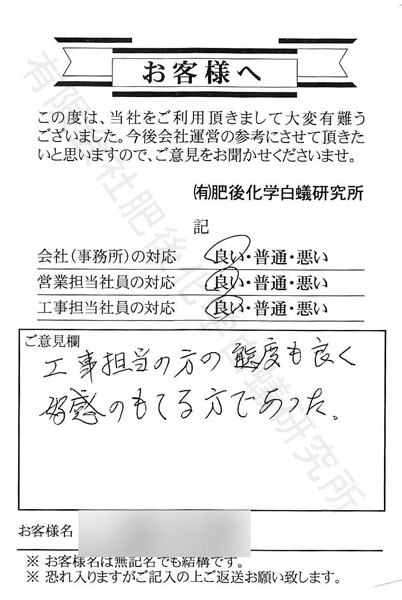 お客様へ
この度は、当社をご利用頂きまして大変有難う
ございました。今後会社運営の参考にさせて頂きた
いと思いますので、ご意見をお聞かせくださいませ。
㈲肥後化学白蟻研究所
記
会社(事務所)の対応 良い・普通・悪い
営業担当社員の対応 良い・普通・悪い
工事担当社員の対応 良い・普通・悪い
ご意見欄
工事担当の方の態度も良く
好感のもてる方であった。
お客様名
※ お客様名は無記名でも結構です。
※ 恐れ入りますがご記入の上ご返送お願い致します。
有限会社肥後化学白蟻研究所